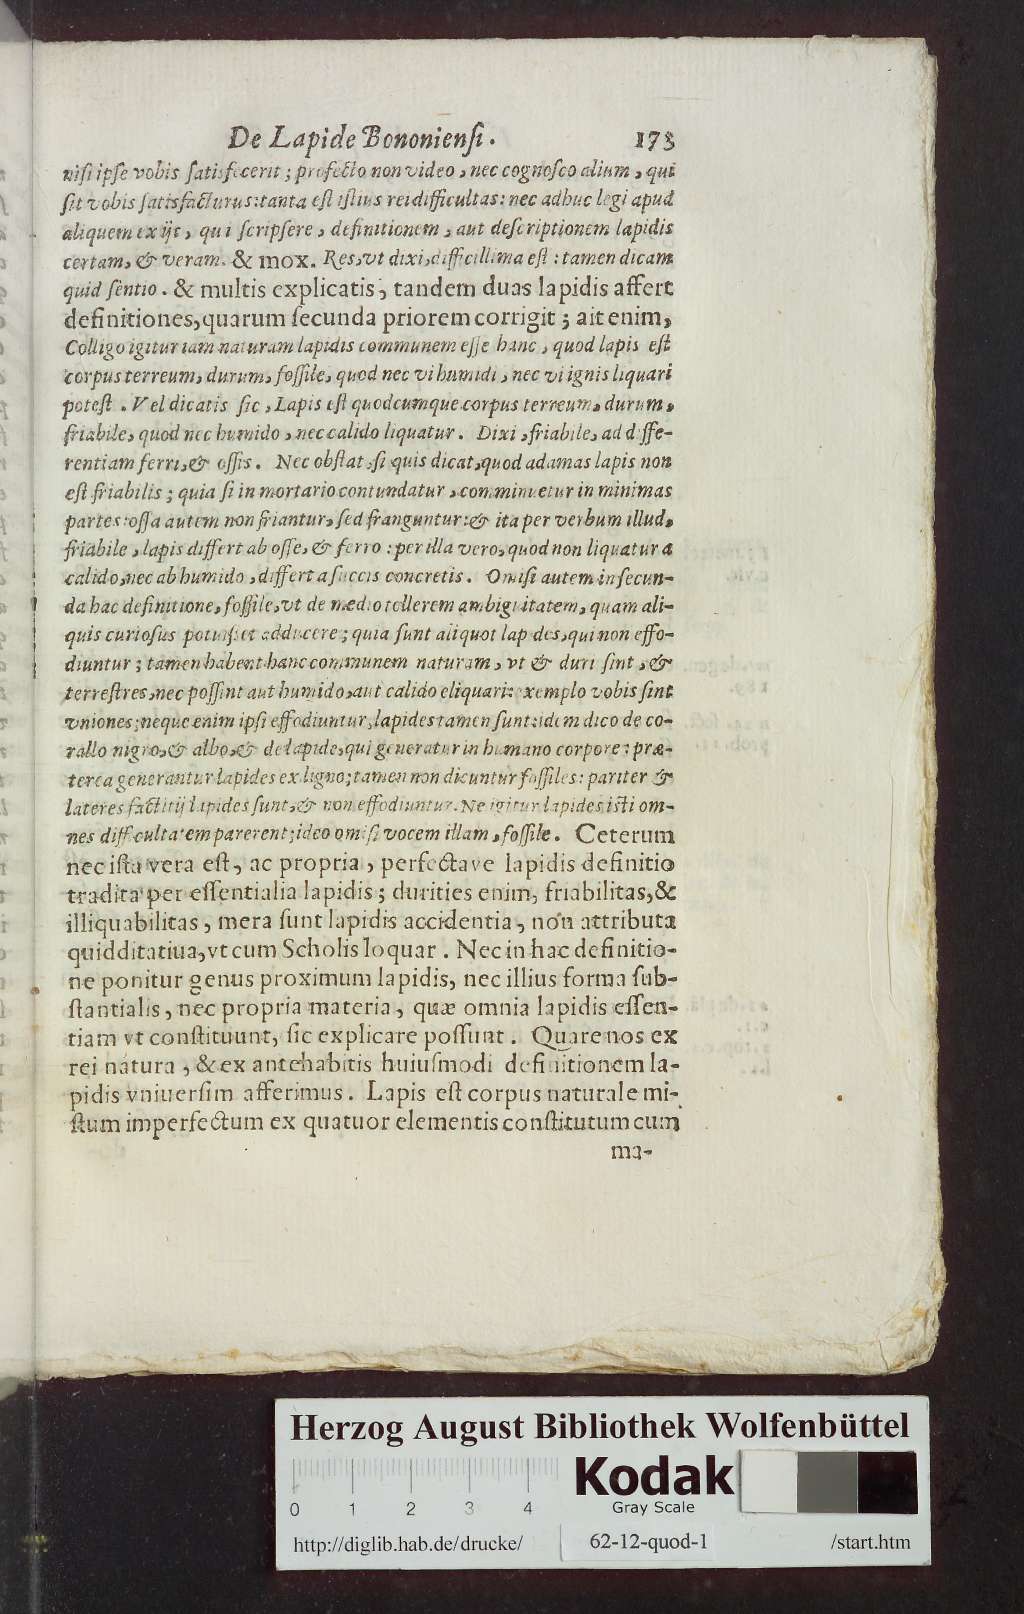 De Lapide Bononiensi. 173
nisi ipse vobis satisfecerit; profecto non video, nec cognosco alium, qui
sit vobis satisfacturus: tanta est istius rei difficultas: nec adhuc legi apud
aliquem ex ijs, qui scripsere, definitionem, aut descriptionem lapidis
certam, & veram. & mox. Res, vt dixi, difficillima est: tamen dicam
quid sentio. & multis explicatis, tandem duas lapidis affert
definitiones, quarum secunda priorem corrigit; ait enim,
Colligo igitur iam naturam lapidis communem esse hanc, quod lapis est
corpus terreum, durum, fossile, quod nec vi humidi, nec vi ignis liquari
potest. Vel dicatis sic, Lapis est quodcumque corpus terreum, durum,
friabile, quod nec humido, nec calido liquatur. Dixi, friabile, ad diffe-
rentiam ferri, & ossis. Nec obstat, si quis dicat, quod adamas lapis non
est friabilis; quia si in mortario contundatur, comminuetur in minimas
partes: ossa autem non friantur, sed franguntur: & ita per verbum illud,
friabile, lapis differt ab osse, & ferro: per illa vero, quod non liquatur a
calido, nec ab humido, differt a succis concretis. Omisi autem in secun-
da hac definitione, fossile, vt de medio tollerem ambiguitatem, quam ali-
quis curiosus potuisset adducere; quia sunt aliquot lapides, qui non effo-
diuntur; tamen habent hanc communem naturam, vt & duri sint, &
terrestres, nec possint aut humido, aut calido eliquari: exemplo vobis sint
vniones; neque enim ipsi effodiuntur, lapides tamen sunt: idem dico de co-
rallo nigro, & albo, & de lapide, qui generatur in humano corpore: præ-
terea generantur lapides ex ligno; tamen non dicuntur fossiles: pariter &
lateres factitij lapides sunt, & non effodiuntur. Ne igitur lapides isti om-
nes difficultatem parerent; ideo omisi vocem illam, fossile. Ceterum
nec ista vera est, ac propria, perfectave lapidis definitio
tradita per essentialia lapidis; durities enim, friabilitas, &
illiquabilitas, mera sunt lapidis accidentia, non attributa
quidditatiua, vt cum Scholis loquar. Nec in hac definitio-
ne ponitur genus proximum lapidis, nec illius forma sub-
stantialis, nec propria materia, quæ omnia lapidis essen-
tiam vt constituunt, sic explicare possunt. Quare nos ex
rei natura, & ex antehabitis huiusmodi definitionem la-
pidis vniuersim afferimus. Lapis est corpus naturale mi-
stum imperfectum ex quatuor elementis constitutum cum
ma-
Herzog August Bibliothek Wolfenbüttel
Kodak
Gray Scale
0 1 2 3 4
http://diglib.hab.de/drucke/ 62-12-quod-1 /start.htm